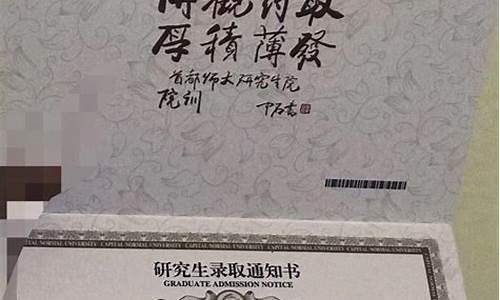 博觀約取
厚積薄發
首都师大研究生院
院训 中石书
CAPITAL NORMAL UNIVERSITY CAPITAL NORMAL UNIVERSITY CAPITAL NORMAL UNIVERSITY
研究生录取通知书
GRADUATE ADMISSION NOTICE